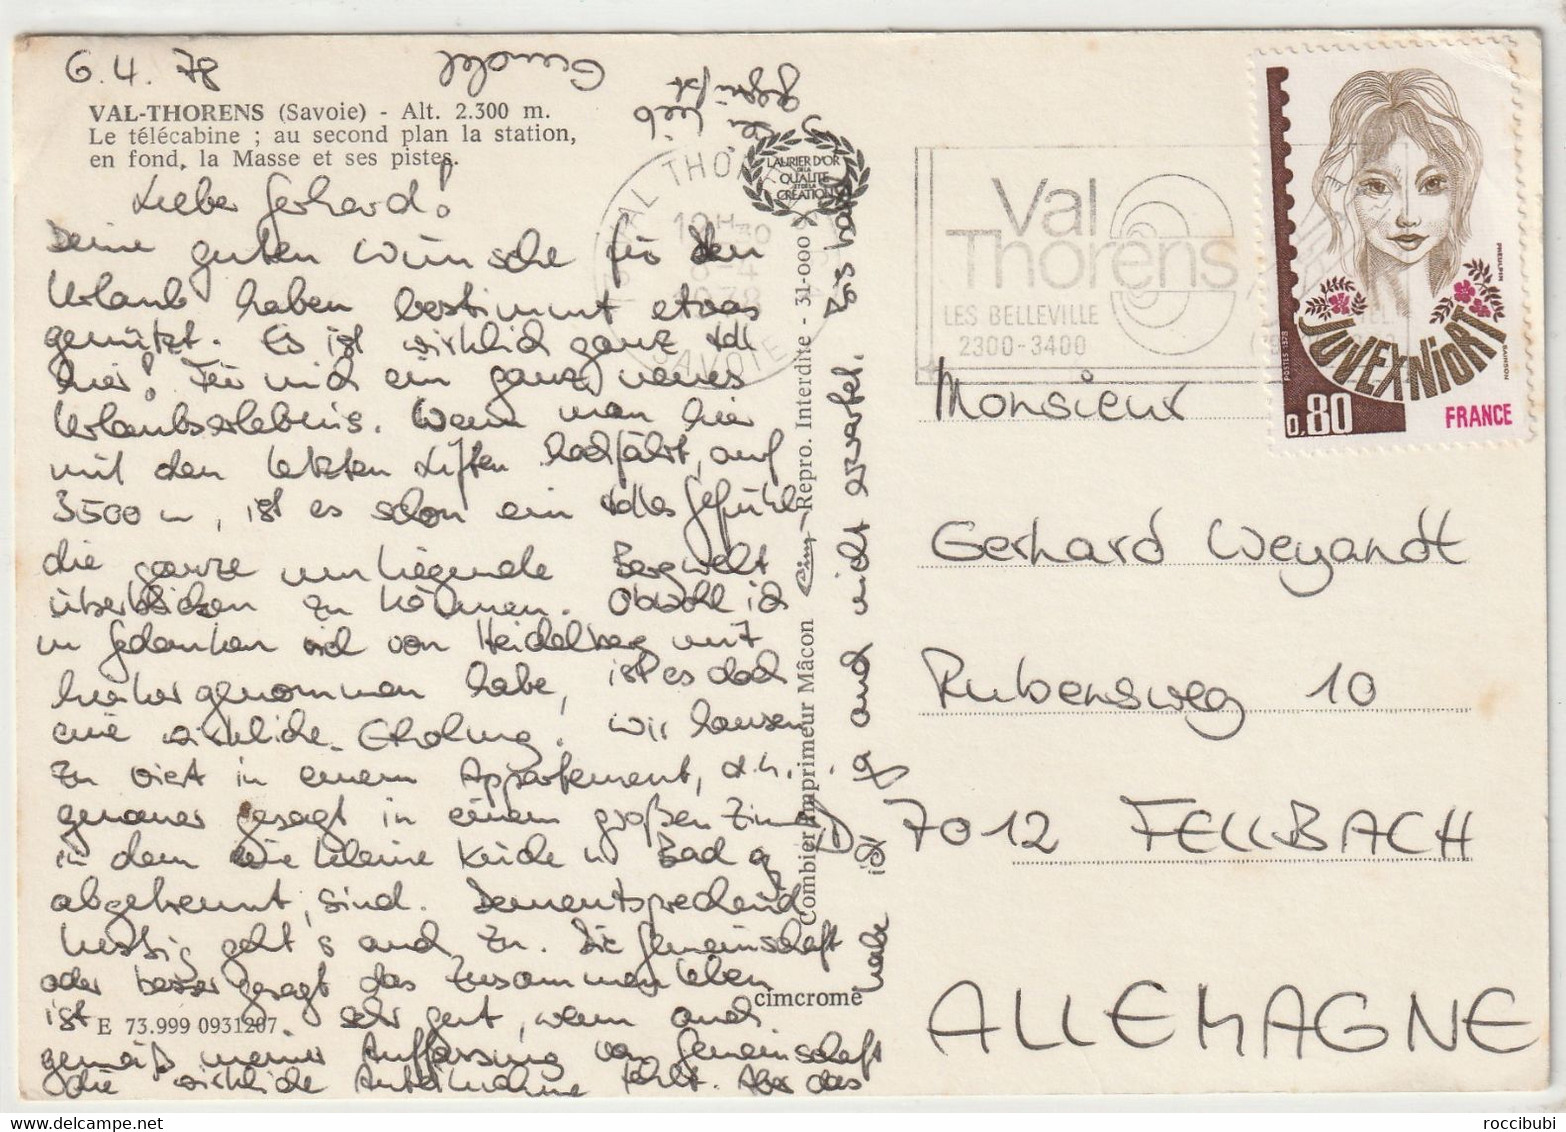 6.4.78
VAL-THORENS (Savoie) - Alt. 2.300 m.
Le télécabine ; au second plan la station,
en fond, la Masse et ses pistes.
Lieber Gerhard!
Deine guten Wünsche für den
Urlaub haben bestimmt etwas
genützt. Es ist wirklich ganz toll
hier! Für mich ein ganz neues
Urlaubserlebnis. Wenn man hier
mit den letzten Liften hochfährt, auf
3500 m, ist es schon ein tolles Gefühl
die ganze umliegende Bergwelt
überblicken zu können. Obwohl ich
in Gedanken viel von Heidelberg mit
hierher genommen habe, ist es doch
eine wirkliche Erholung. Wir hausen
zu viert in einem Appartement, d.h.
genauer gesagt in einem großen Zimmer
in dem eine kleine Küche u. Bad
abgetrennt sind. Dementsprechend
lustig geht's auch zu. Die Gemeinschaft
oder besser gesagt das Zusammenleben
ist sehr gut, wenn auch
gemäß meiner Auffassung von Gemeinschaft
die wirkliche Anteilnahme fehlt. Aber das
habe ich auch nicht erwartet.
Sei lieb
gegrüßt
Gundel
E 73.999 0931207
cimcrome
Combier Imprimeur Mâcon Cim Repro. Interdite - 31-000
LAURIER D'OR
DE LA
QUALITÉ
ET DE LA
CRÉATION
VAL THORENS
10H30
6-4
1978
SAVOIE
Val
Thorens
LES BELLEVILLE
2300-3400
JUVEXNIORT
POSTES 1978
0,80
FRANCE
Monsieur
Gerhard Weyandt
Rubensweg 10
D 7012 FELLBACH
ALLEMAGNE
roccibubi